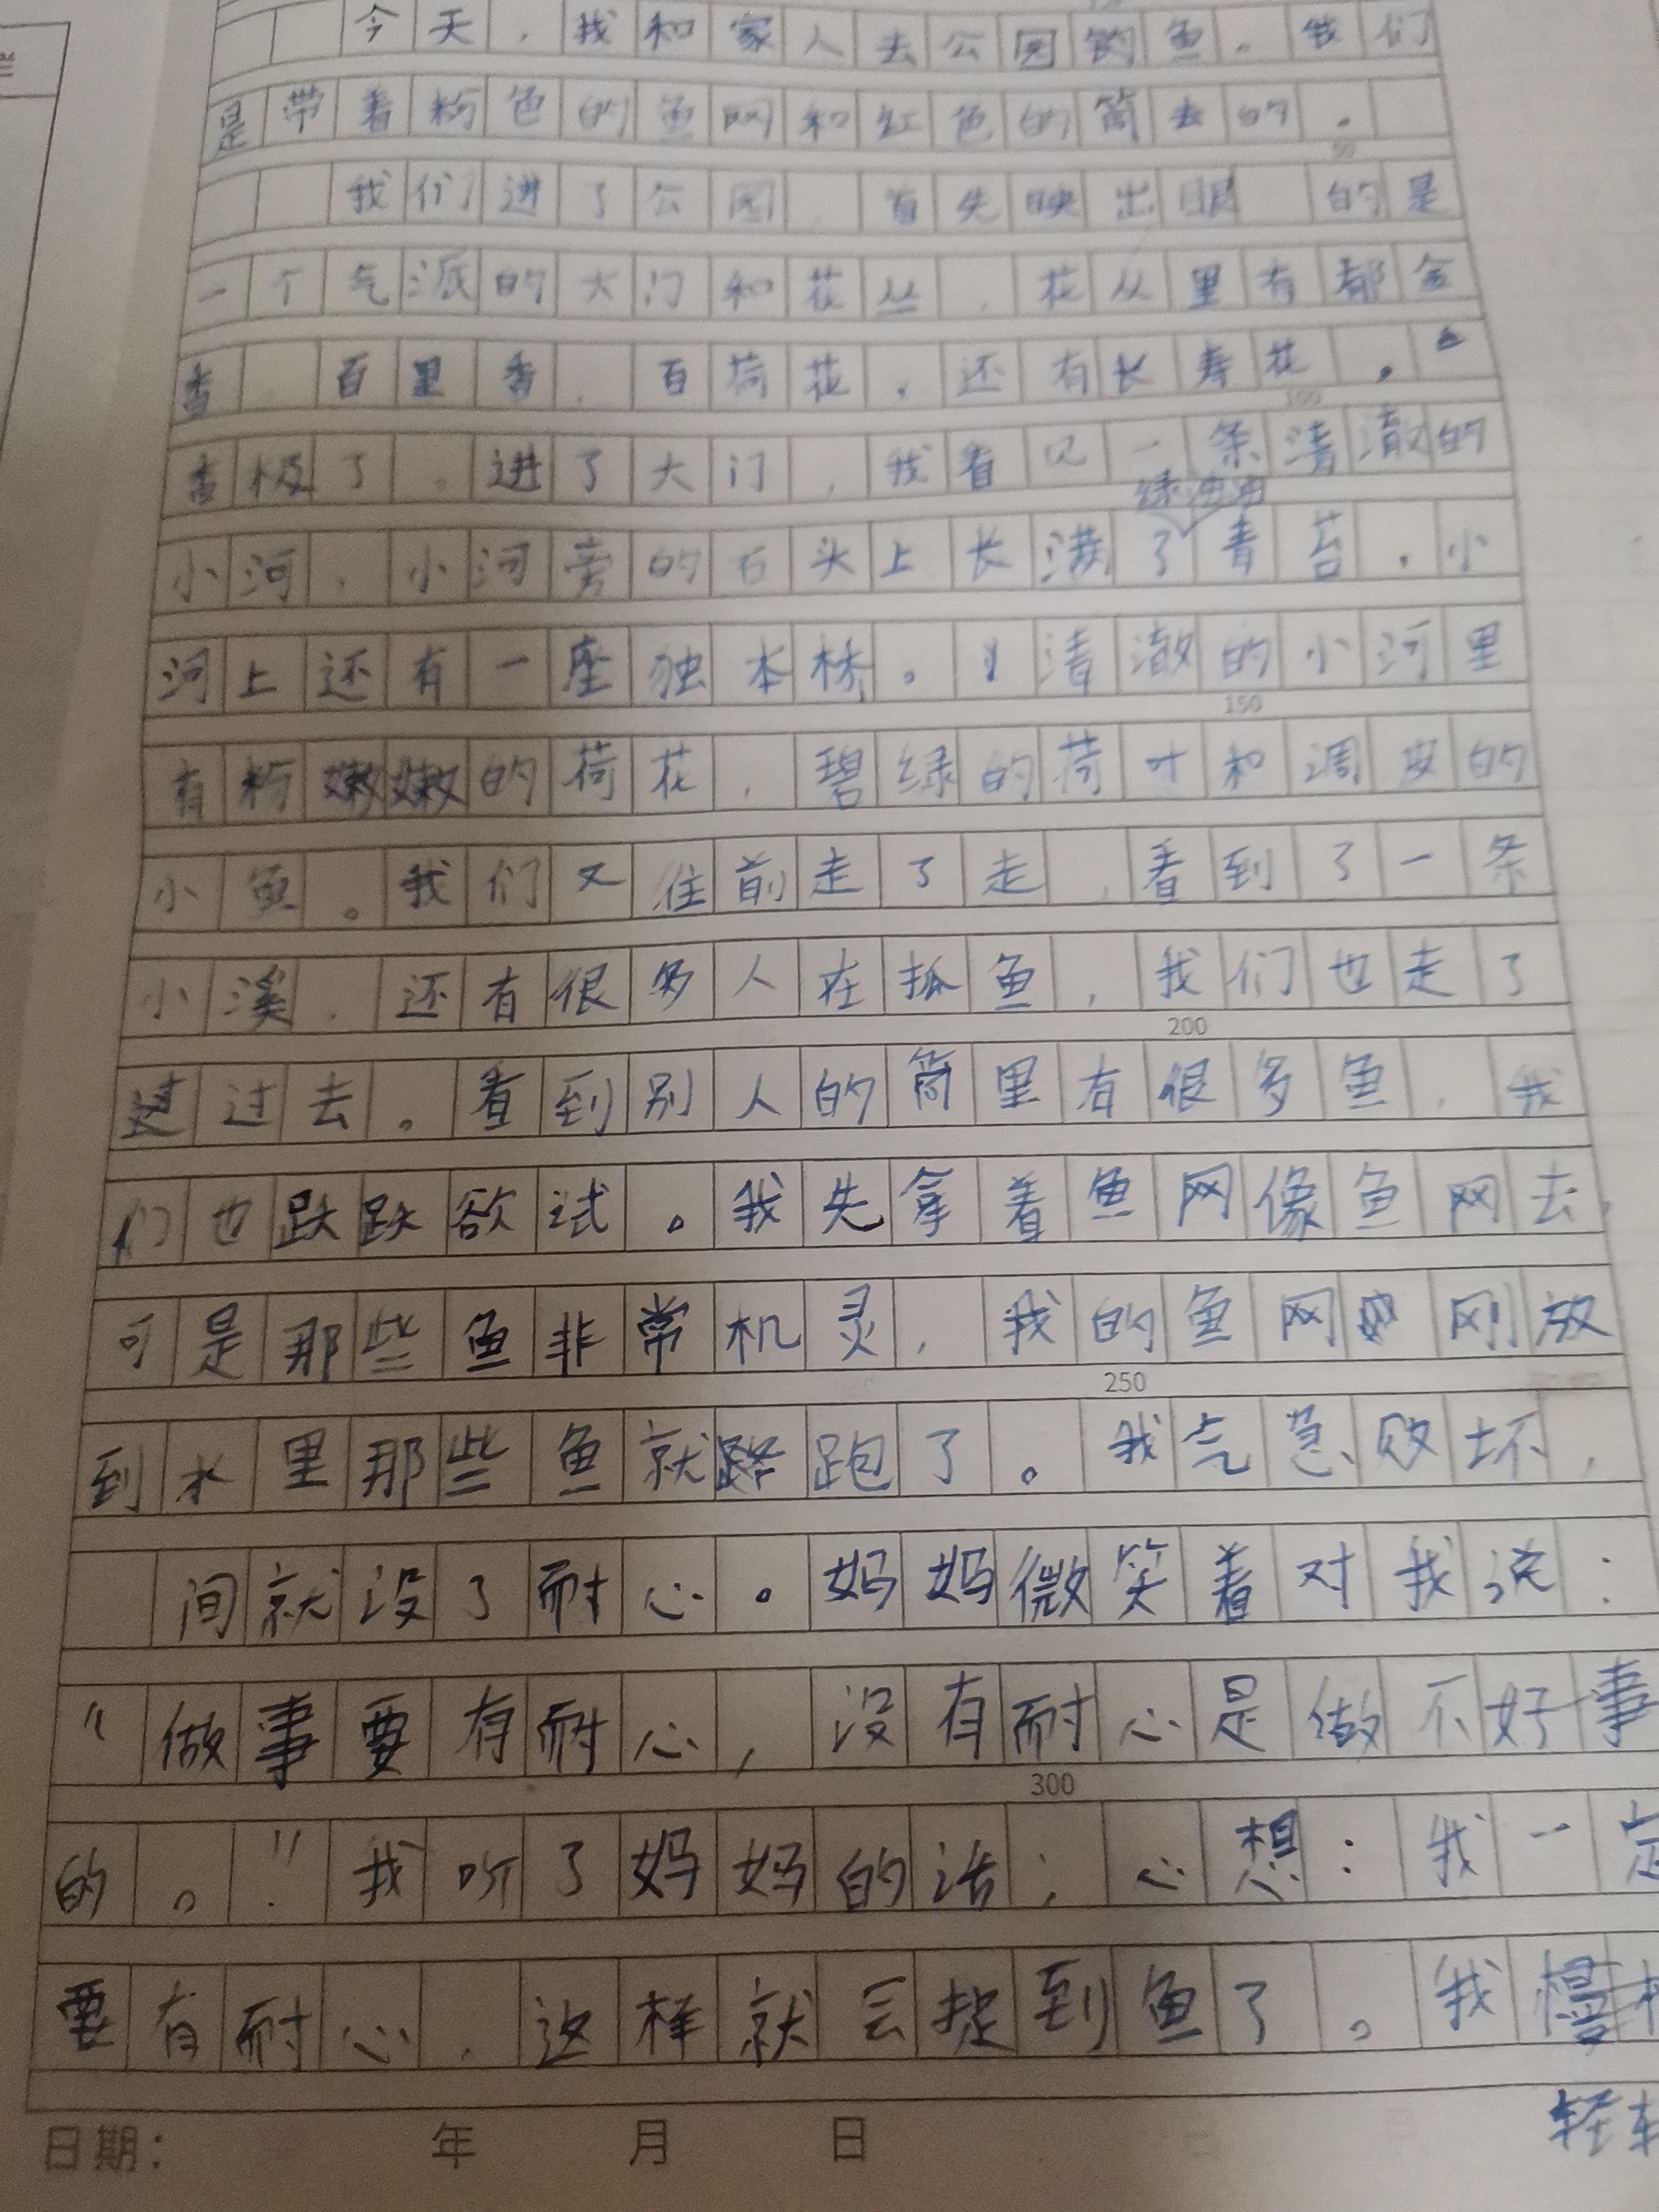 今天，我和家人去公园钓鱼。我们
是带着粉色的鱼网和红色的筒去的。
我们进了公园，首先映出眼 的是
一个气派的大门和花丛，花从里有郁金
香，百里香，百荷花，还有长寿花，
香极了。进了大门，我看见一条清澈的
绿油油
小河，小河旁的石头上长满了青苔，小
河上还有一座独本桥。清澈的小河里
有粉嫩嫩的荷花，碧绿的荷叶和调皮的
小鱼。我们又往前走了走，看到了一条
小溪，还有很多人在抓鱼，我们也走了
过去。看到别人的筒里有很多鱼，我
们也跃跃欲试。我先拿着鱼网像鱼网去，
可是那些鱼非常机灵，我的鱼网刚放
到水里那些鱼就跑了。我气急败坏，
间就没了耐心。妈妈微笑着对我说：
“做事要有耐心，没有耐心是做不好事
的。”我听了妈妈的话，心想：我一定
要有耐心，这样就会捉到鱼了。我慢
日期： 年 月 日
轻